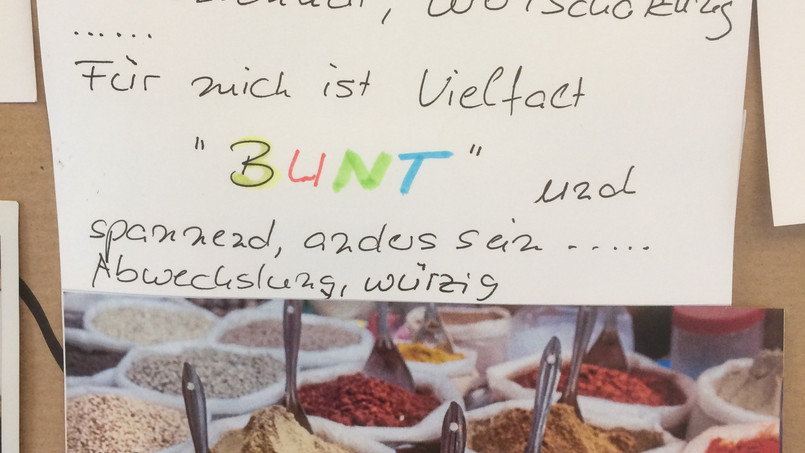 , Wertschätzung
......
Für mich ist Vielfalt
"BUNT" und
spannend, anders sein ......
Abwechslung, würzig